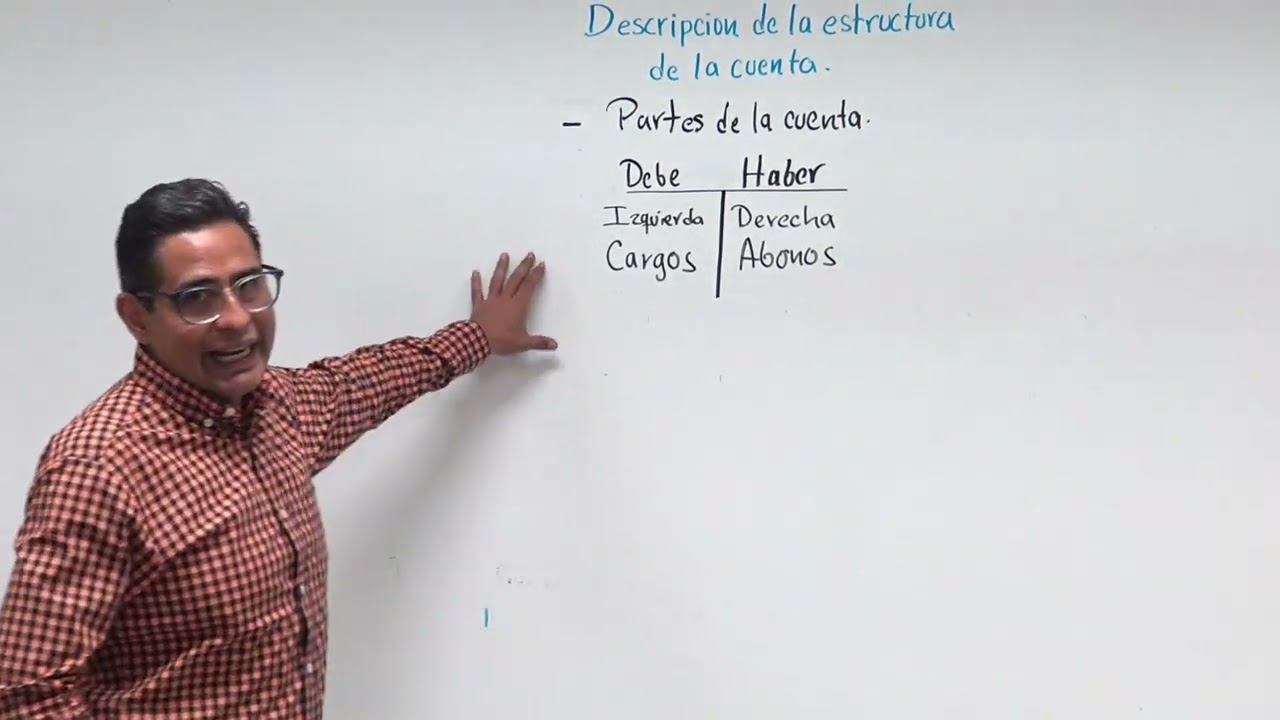 Descripcion de la estructura
de la cuenta.
- Partes de la cuenta.
Debe Haber
Izquierda Derecha
Cargos Abonos